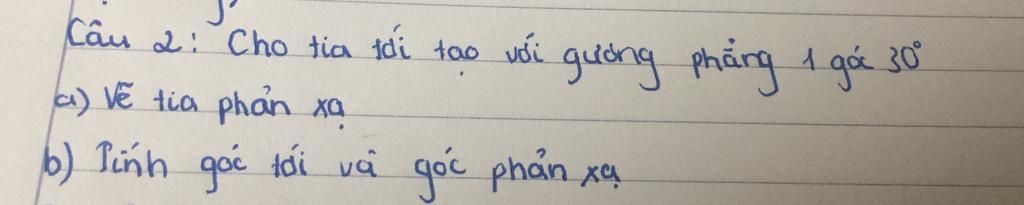 Câu 2: Cho tia tới tạo với gương phẳng 1 góc 30°
a) Vẽ tia phản xạ
b) Tính góc tới và góc phản xạ